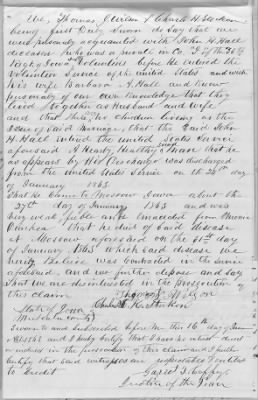 We, Thomas
being first Duly Sworn do Say that we
were personaly acquainted with John H. Hall
deceased who was a private in Co. I of the 35th
Volunteers before he entered the
Volunteer Service of the United States and with
his wife Barbara A Hall and know
personaly of our own knowledge that they
lived together as Husband and Wife
and that no children living as the
issue of said Marriage, that the said John
H Hall entered the United States Service
aforesaid A Hearty, Healthy Man that he
as appears by His Discharge was discharged
from the United States Service on the
of January 1863
That he Came to Moscow, Iowa about the
27th day of January 1863 and was
very weak, feeble and emaceated from Chronic
Diarrhea that he died of Said disease
at Moscow aforesaid on the 31st day
of January 1863 which said disease we
believe was contracted in the service
aforesaid, and we further depose and say
that we are disinterested in the prosecution of
this claim
State of Iowa
Muscatine County
Sworn to and Subscribed before me this 16th day of
and I hereby Certify that I have no interest direct
or indirect in the prosecution of this claim and I further
Certify that said witnesses are respectable & entitled
to Credit
Justice of the Peace